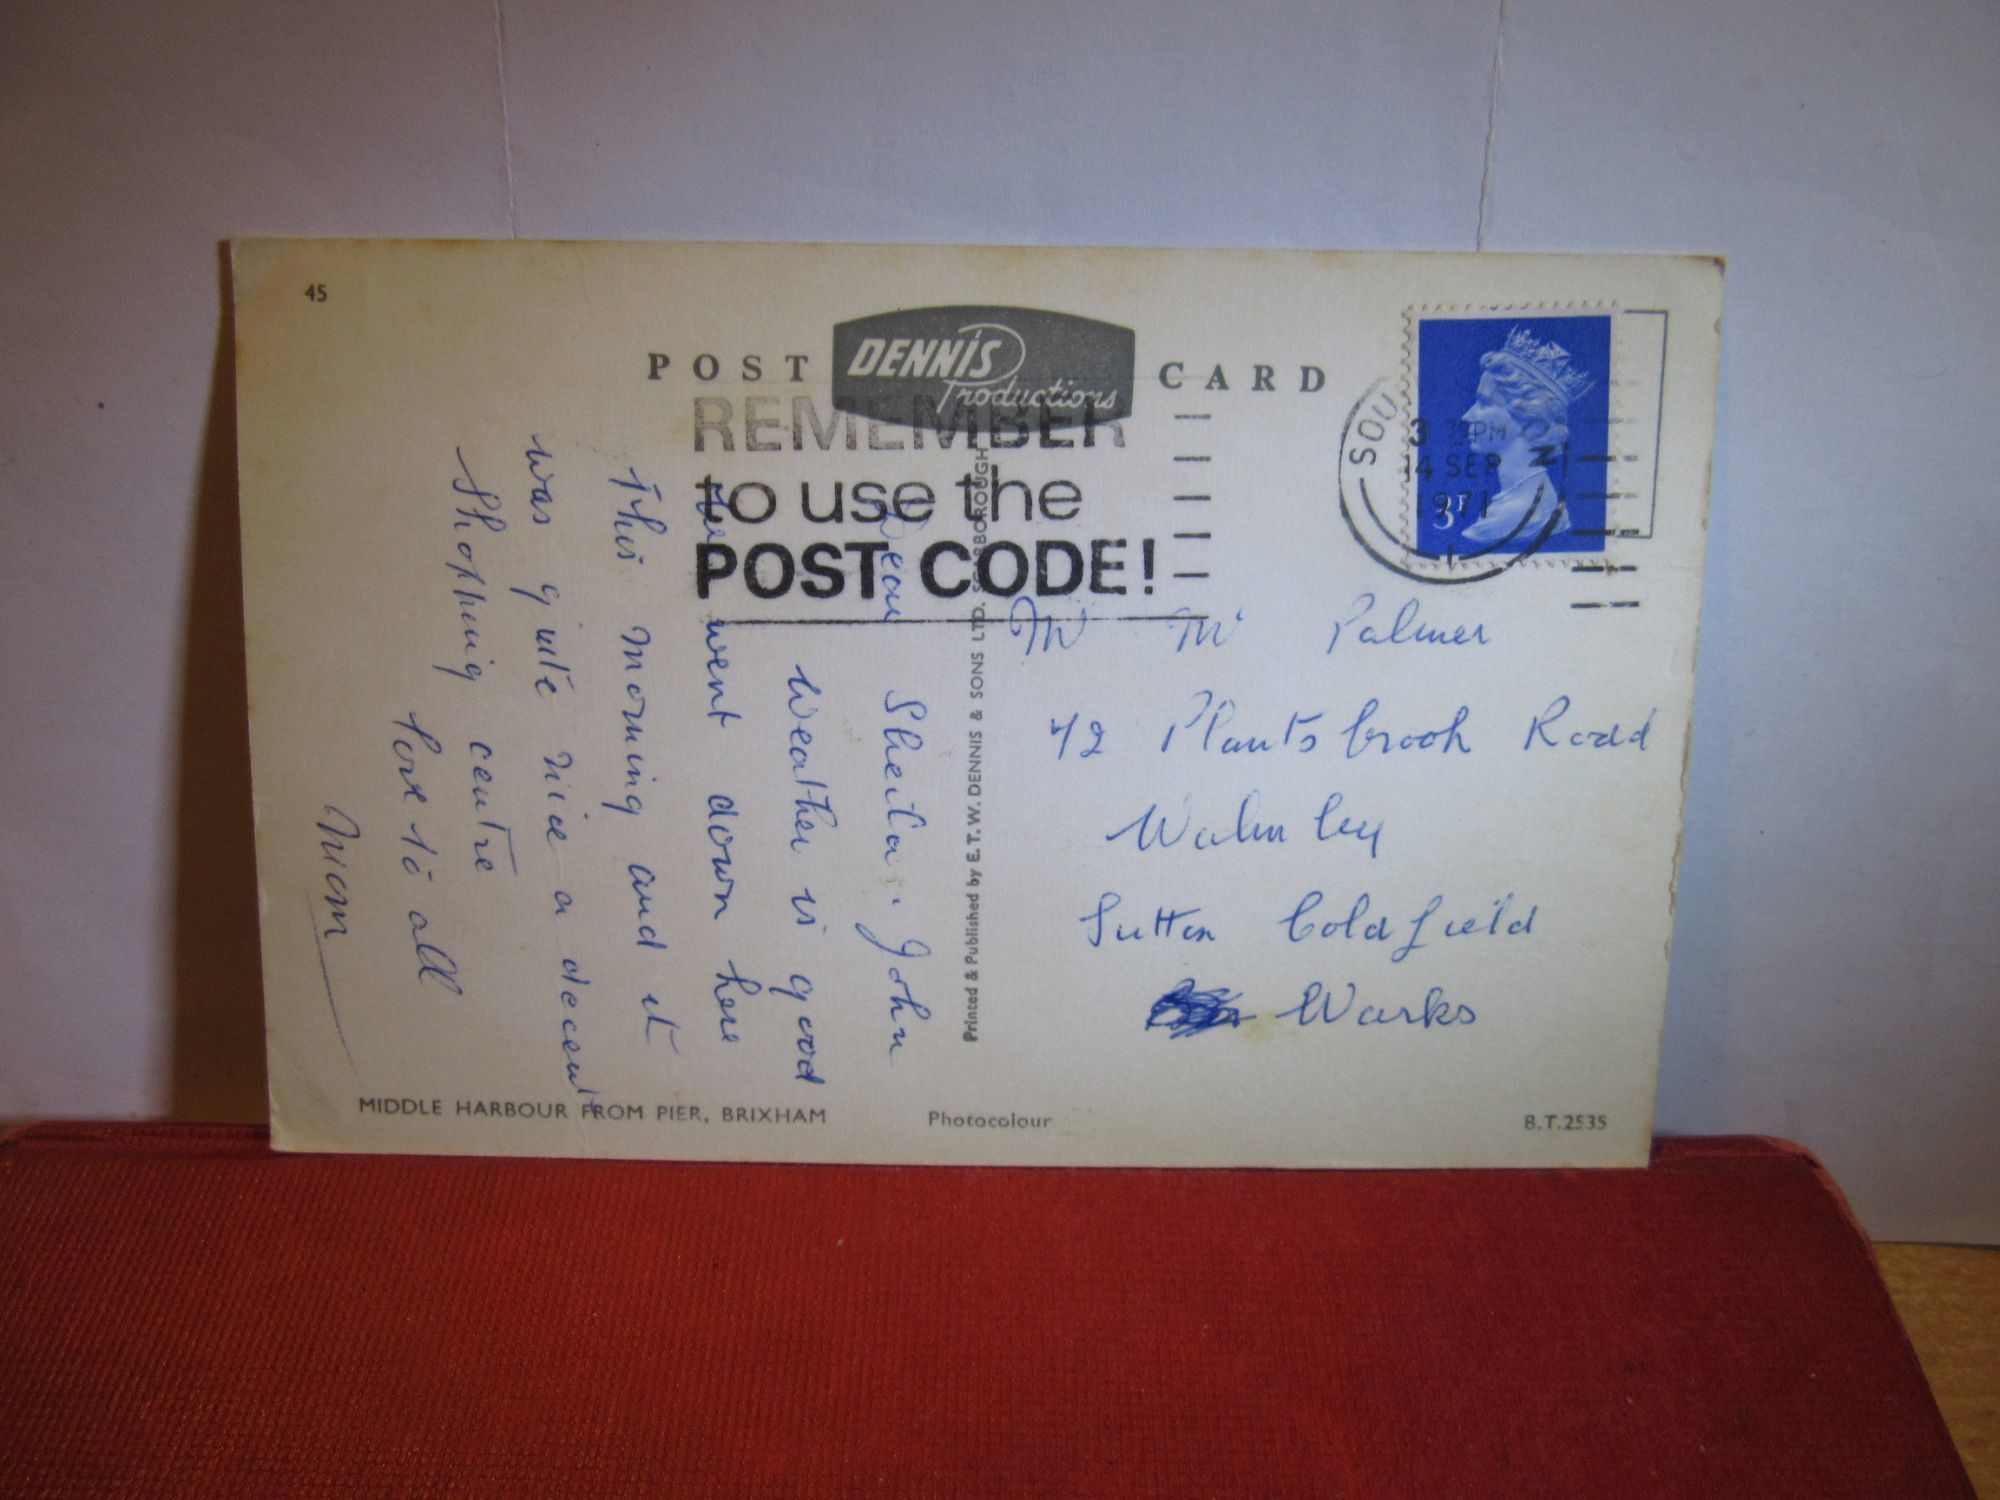 45
POST CARD
DENNIS
Productions
REMEMBER
to use the
POST CODE!
SOU
3 30PM
4 SEP
1971
3P
Dear Sheila. John
Weather is good
went down here
this morning and it
was quite nice a decent
Shopping centre
love to all
Mom
Printed & Published by E. T. W. DENNIS & SONS LTD. SCARBOROUGH
M M Palmer
72 Plantsbrook Road
Walmley
Sutton Coldfield
Warks
MIDDLE HARBOUR FROM PIER, BRIXHAM
Photocolour
B.T.2535